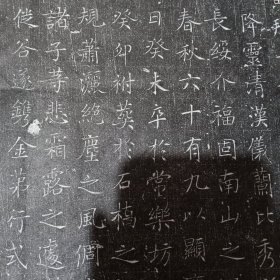 降靈清漢儀蘭比秀
長綏介福固南山之
春秋六十有九以顯
日癸未卒於常樂坊
癸卯祔葬於石槁之
規蕭灑絕塵之風倜
諸子等悲霜露之遽
俊谷遂鐫金苐行式